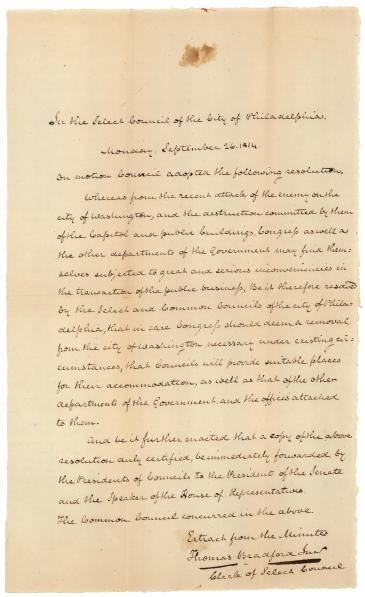 In the Select Council of the City of Philadelphia.
Monday, September 26. 1814.
On motion Council adopted the following resolution,
Whereas from the recent attack of the enemy on the
city of Washington, and the destruction committed by them
of the Capitol and public buildings, Congress as well as
the other departments of the Government may find them=
selves subjected to great and serious inconveniencies in
the transaction of the public business, Be it therefore resolved
by the Select and Common Councils of the city of Phila=
delphia, that in case Congress should deem a removal
from the city of Washington necessary under existing cir=
cumstances, that Councils will provide suitable places
for their accommodation, as well as that of the other
departments of the Government, and the offices attached
to them.
And be it further enacted that a copy of the above
resolution duly certified, be immediately forwarded by
the Presidents of Councils to the President of the Senate
and the Speaker of the House of Representatives
The Common Council concurred in the above.
Extract from the Minutes
Thomas Bradford Junr
Clerk of Select Council